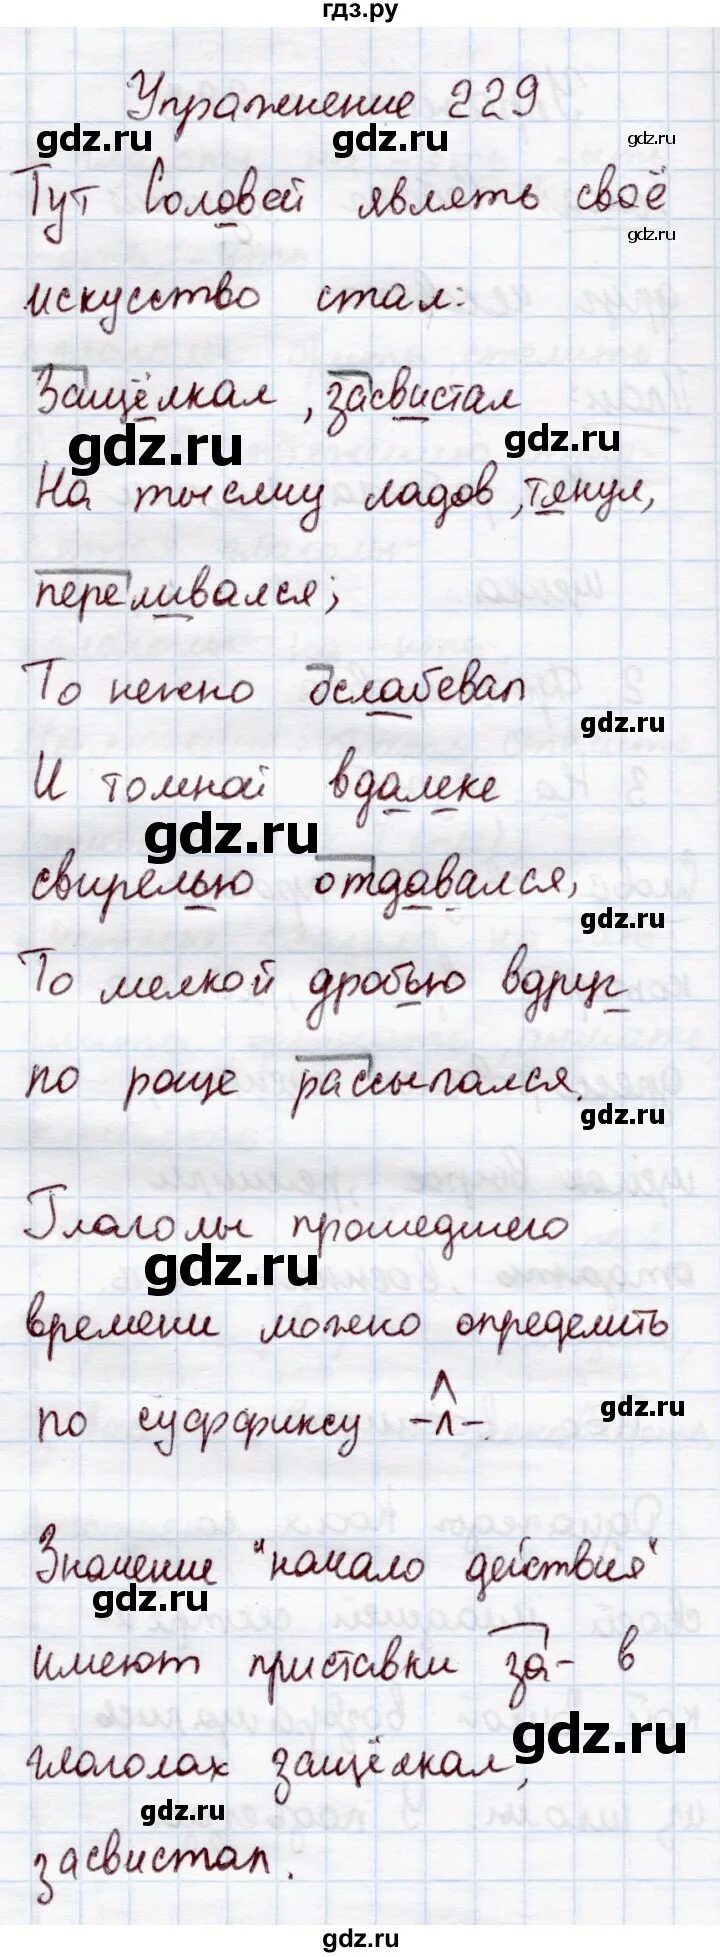 гдз.ру
Упражнение 229
gdz.ru gdz.ru gdz.ru
Тут Соловей являть своё
gdz.ru
искусство стал:
Защёлкал, засвистал
gdz.ru gdz.ru
На тысячу ладов, тянул,
переливался;
То нежно ослабевал
gdz.ru
И томной вдалеке
gdz.ru
свирелью отдавался,
gdz.ru
То мелкой дробью вдруг
по роще рассыпался.
gdz.ru
Глаголы прошедшего
gdz.ru
времени можно определить
gdz.ru
по суффиксу -л-
Значение "начало действия"
gdz.ru
имеют приставки за- в
gdz.ru
глаголах защёлкал,
gdz.ru
засвистал.
gdz.ru